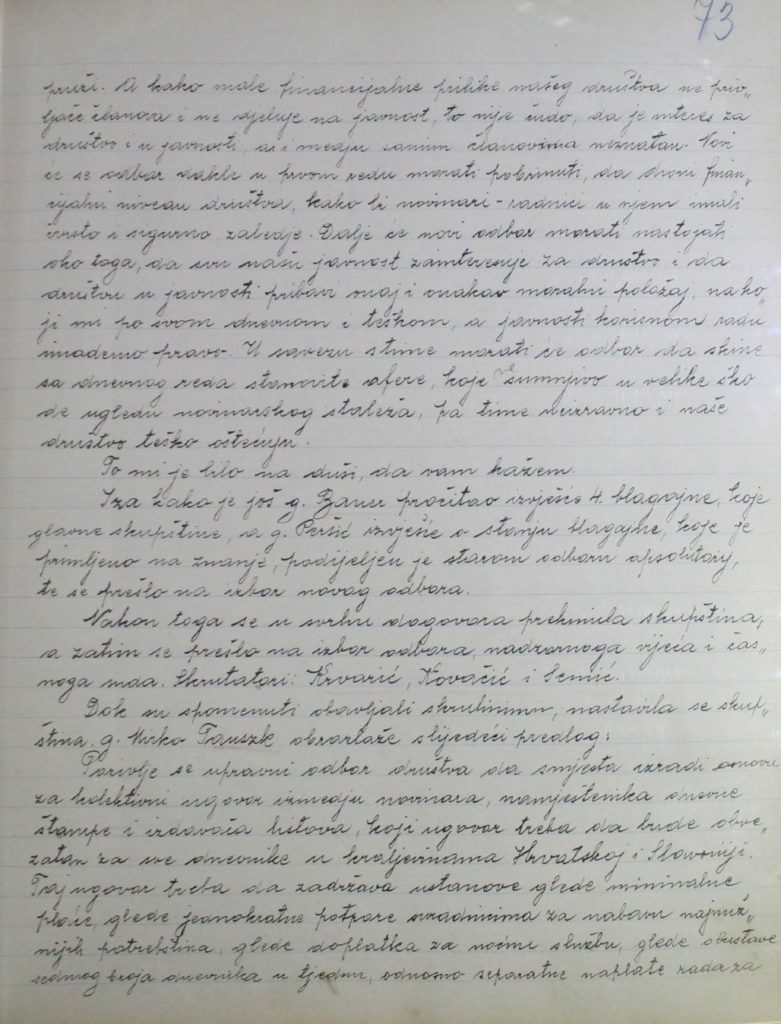 73
pruži. A kako male financijalne prilike našeg društva ne priv„
lače članova i ne djeluje na javnost, to nije čudo, da je interes za
društvo i u javnosti, a i medju samim članovima neznatan. Novi
će se odbor dakle u prvom redu morati pobrinuti, da digni finan„
cijalni niveau društva, kako bi novinari-radnici u njem imali
čvrsto i sigurno zaledje. Dalje će novi odbor morati nastojati
oko toga, da svu našu javnost zainteresuje za društvo i da
društvu u javnosti pribavi onaj i onakav moralni položaj, na ko„
ji mi po svom dnevnom i teškom, a javnosti korisnom radu
imademo pravo. U savezu s time morati će odbor da skine
sa dnevnog reda stanovite afere, koje sumnjivo u velike ško
de ugledu novinarskog staleža, pa time neizravno i naše
društvo teško oštećuju.
To mi je bilo na duši, da vam kažem.
Iza kako je još g. Bauer pročitao izvješće 4. blagajne, koje
glavne skupštine, a g. Peršić izvješće o stanju blagajne, koje je
primljeno na znanje, podijeljen je starom odboru apsolutorij,
te se prešlo na izbor novog odbora.
Nakon toga se u svrhu dogovora prekinula skupština,
a zatim se prešlo na izbor odbora, nadzornoga vijeća i čas„
noga suda. Skrutatori: Krvarić, Kovačić i
Dok su spomenuti obavljali skrutinium, nastavila se skup„
ština. g. Mirko Tauszk obrazlaže slijedeći predlog:
Pozivlje se upravni odbor društva da smjesta izradi osnovu
za kolektivni ugovor izmedju novinara, namještenika dnevne
štampe i izdavača listova, koji ugovor treba da bude obve„
zatan za sve dnevnike u kraljevinama Hrvatskoj i Slavoniji.
Taj ugovor treba da zadržava ustanove glede minimalne
plaće, glede jednokratne potpore suradnicima za nabavu najnuž„
nijih potrebština, glede doplatka za noćnu službu, glede obustave
sedmog broja dnevnika u tjednu, odnosno separatne naplate rada za